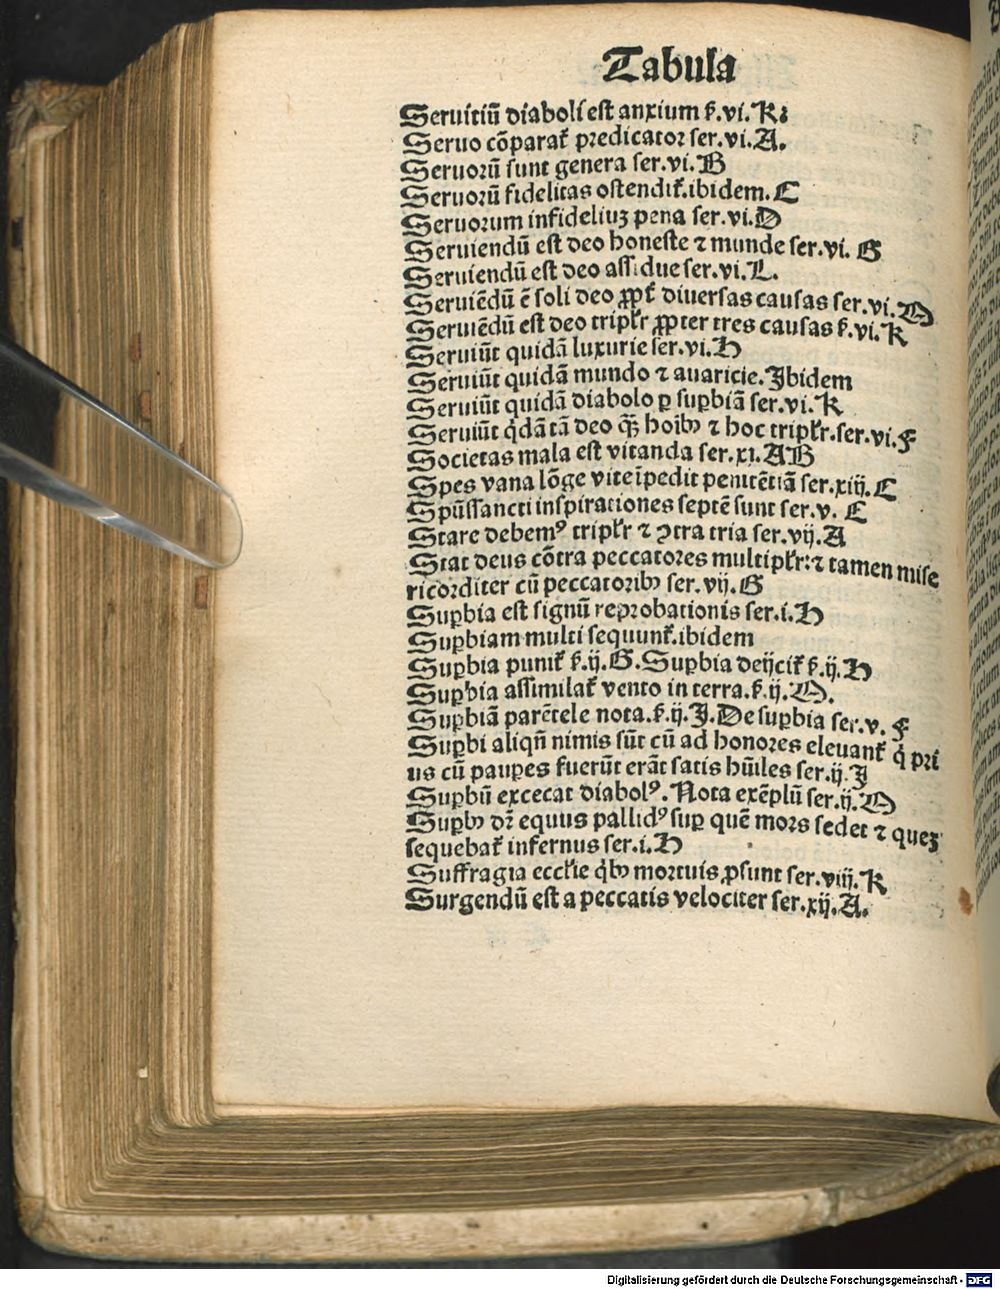 Tabula
Seruitiũ diaboli est anxium ẜ.vi.K:
Seruo cõparat̃ predicator ser.vi.A.
Seruorũ sunt genera ser.vi.B
Seruorũ fidelitas ostendit̃.ibidem.C
Seruorum infideliuꝫ pena ser.vi.D
Seruiendũ est deo honeste ⁊ munde ser.vi. G
Seruiendũ est deo assidue ser.vi.L.
Seruiẽdũ ẽ soli deo ꝓpt̃ diuersas causas ser.vi.O
Seruiẽdũ est deo triplr̃ ꝓpter tres causas ẜ.vi.K
Seruiũt quidã luxurie ser.vi.H
Seruiũt quidã mundo ⁊ auaricie.Ibidem
Seruiũt quidã diabolo ꝑ suꝑbiã ser.vi.K
Seruiũt q̇dã tã deo q̃ꝫ hoĩbꝰ ⁊ hoc triplr̃.ser.vi.F
Societas mala est vitanda ser.xi.AB
Spes vana lõge vite ĩpedit penitẽtiã ser.xiij.C
Spũssancti inspirationes septẽ sunt ser.v. E
Stare debemꝰ triplr̃ ⁊ ꝯtra tria ser.vij.A
Stat deus cõtra peccatores multiplr̃:⁊ tamen mise
ricorditer cũ peccatoribꝰ ser.vij.G
Suꝑbia est signũ reprobationis ser.i.H
Suꝑbiam multi sequunt̃.ibidem
Suꝑbia punit̃ ẜ.ij.G.Suꝑbia deijcit̃ ẜ.ij.H
Suꝑbia assimilat̃ vento in terra.ẜ.ij.O.
Suꝑbiã parẽtele nota.ẜ.ij.I.De suꝑbia ser.v. F
Suꝑbi aliqñ nimis sũt cũ ad honores eleuant̃ q̇ pri
us cũ pauꝑes fuerũt erãt satis hũiles ser.ij.I
Suꝑbũ excecat diabolꝰ.Nota exẽplũ ser.ij.O
Suꝑbꝰ dr̃ equus pallidꝰ suꝑ quẽ mors sedet ⁊ queꝫ
sequebat̃ infernus ser.i.H
Suffragia eccłie q̇bꝰ mortuis ꝓsunt ser.viij.K
Surgendũ est a peccatis velociter ser.xij.A.
Digitalisierung gefördert durch die Deutsche Forschungsgemeinschaft - DFG